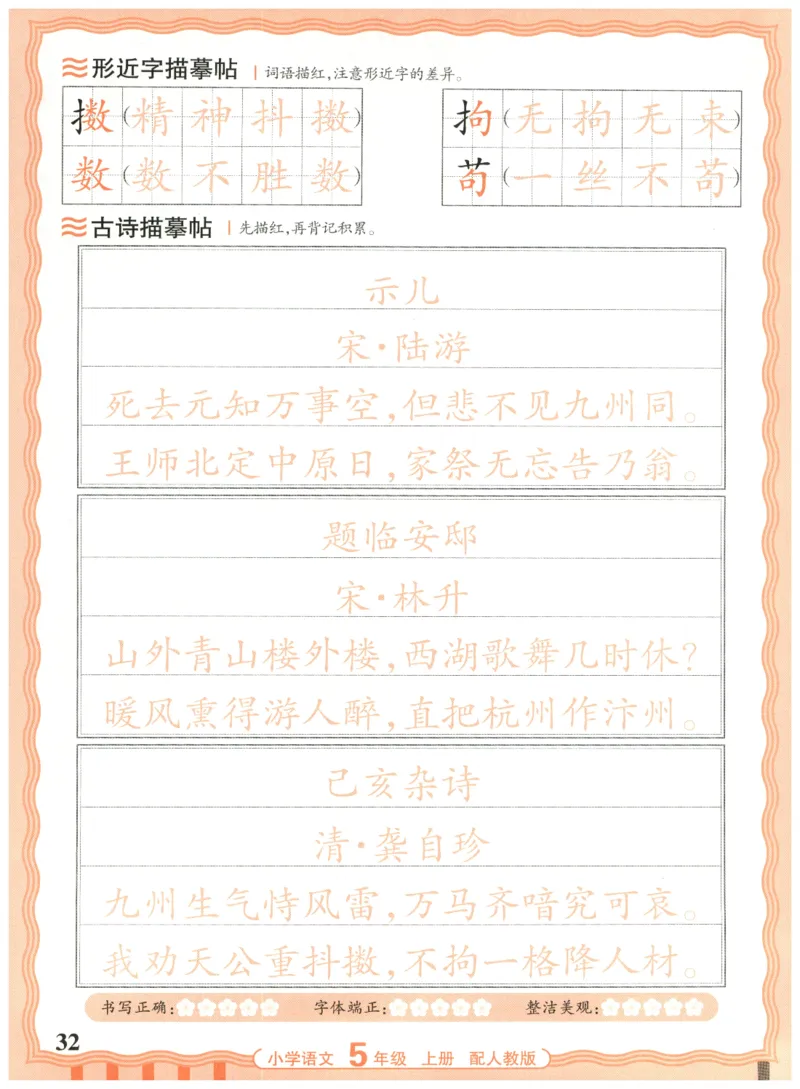 形近字描摹帖 词语描红,注意形近字的差异。
擞(精神抖擞) 拘(无拘无束)
数(数不胜数) 苟(一丝不苟)
古诗描摹帖 先描红,再背记积累。
示儿
宋·陆游
死去元知万事空,但悲不见九州同。
王师北定中原日,家祭无忘告乃翁。
题临安邸
宋·林升
山外青山楼外楼,西湖歌舞几时休?
暖风熏得游人醉,直把杭州作汴州。
己亥杂诗
清·龚自珍
九州生气恃风雷,万马齐喑究可哀。
我劝天公重抖擞,不拘一格降人材。
书写正确: 字体端正: 整洁美观:
32
小学语文 5年级 上册 配人教版